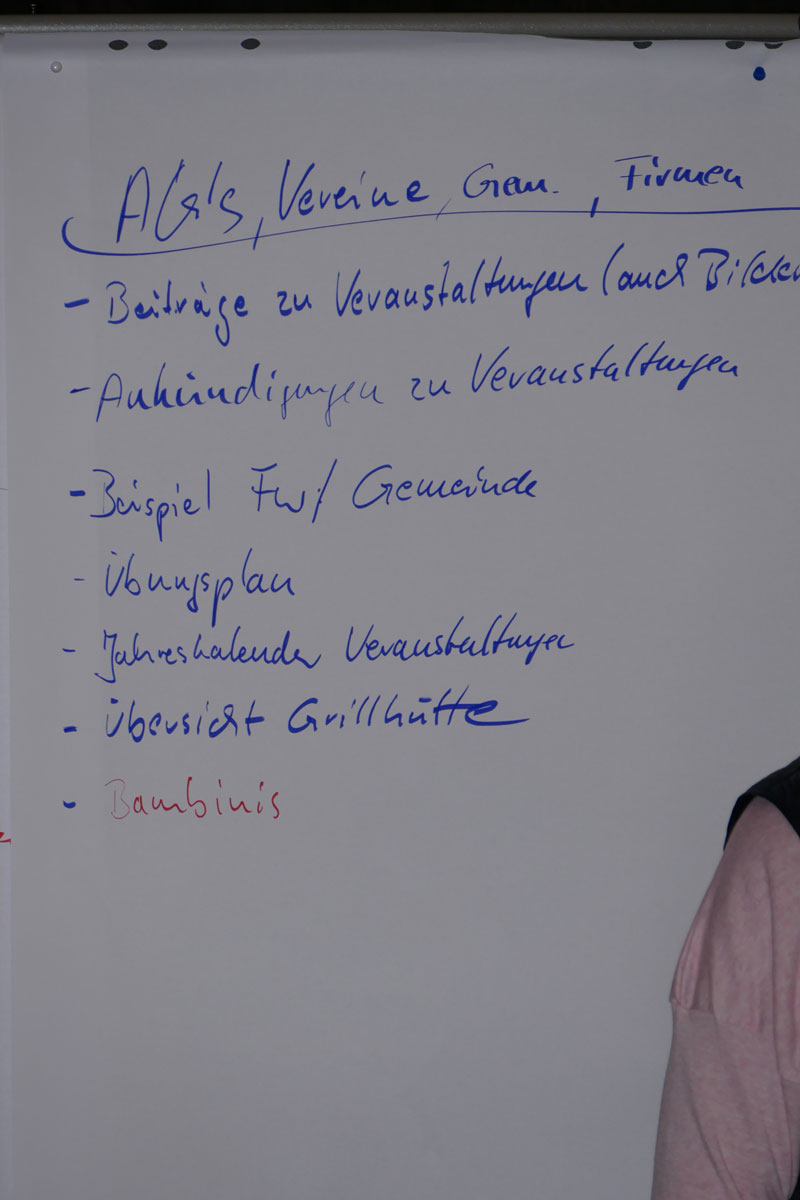 AG's, Vereine, Gem., Firmen
- Beiträge zu Veranstaltungen (auch
- Ankündigungen zu Veranstaltungen
- Beispiel Fw/ Gemeinde
- Übungsplan
- Jahreskalender Veranstaltungen
- Übersicht Grillhütte
- Bambinis